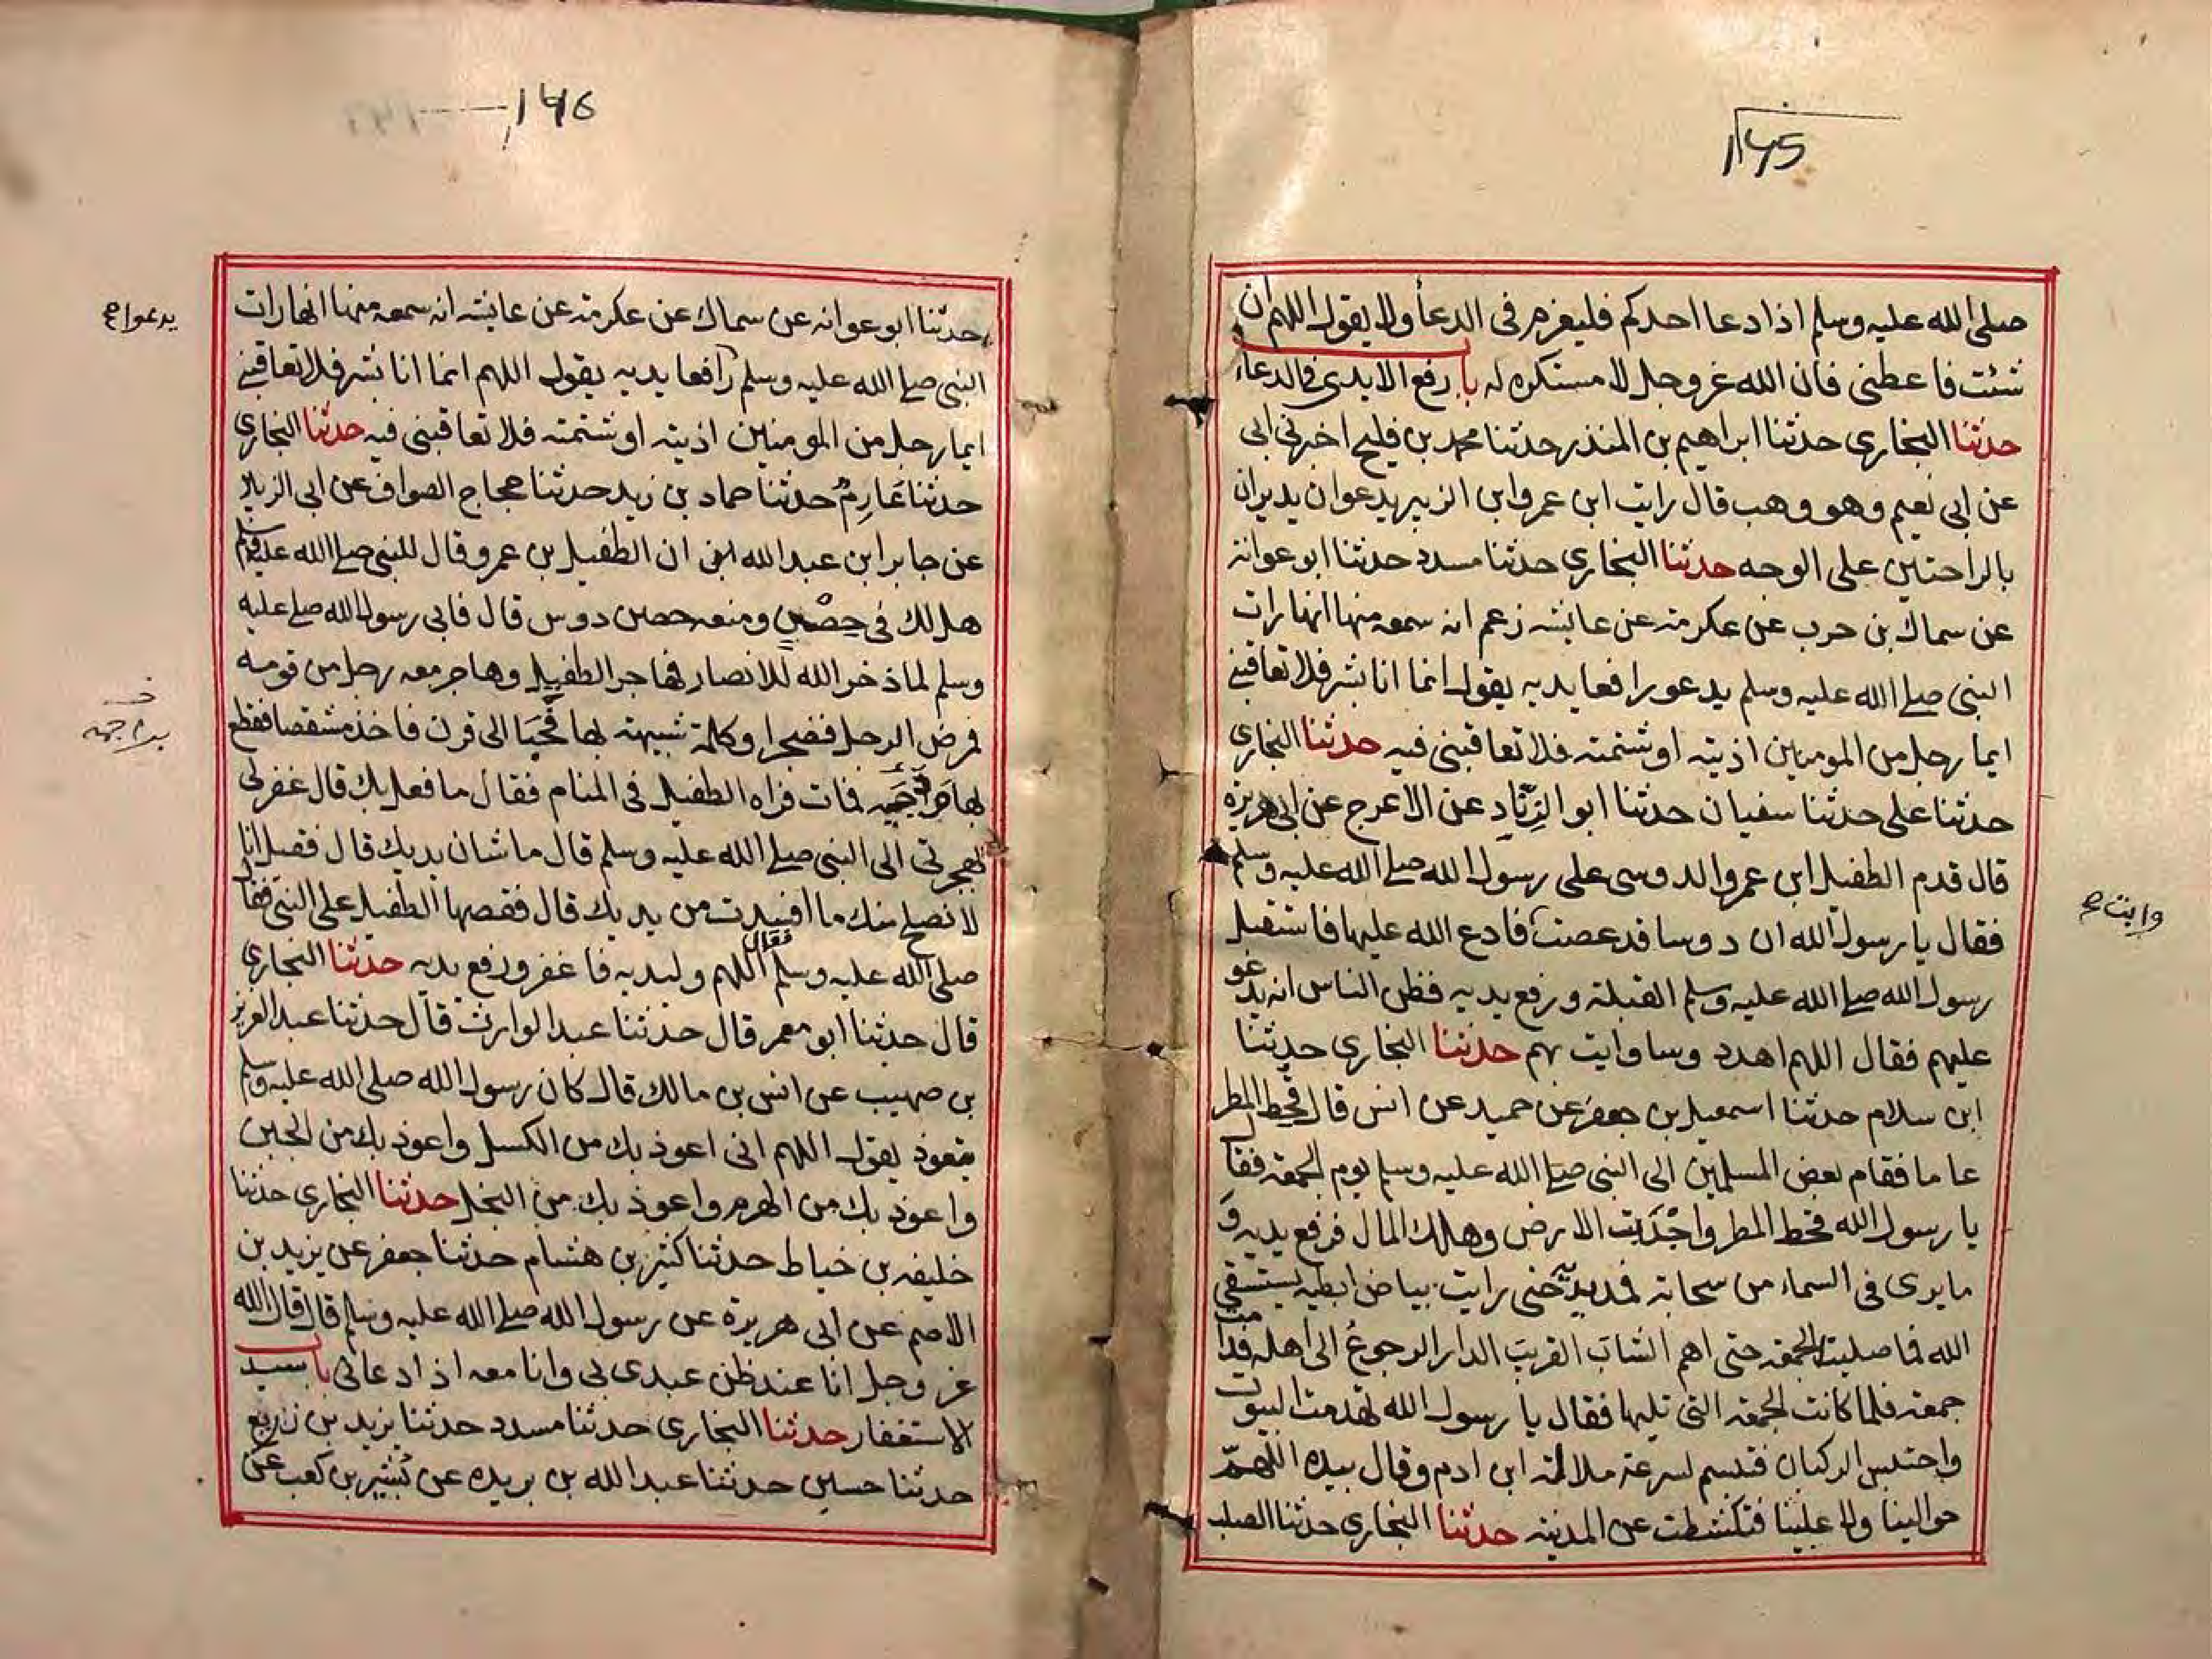 145
صلى الله عليه وسلم اذا دعا احدكم فليعزم في الدعأ ولا يقول اللهم ان
شئت فاعطني فان الله عز وجل لا مستكره له باب رفع الايدي في الدعاء
حدثنا البخاري حدثنا ابراهيم بن المنذر حدثنا محمد بن فليح اخبرني ابي
عن ابي نعيم وهو وهب قال رايت ابن عمر وابن الزبير يدعوان يديران
بالراحتين على الوجه حدثنا البخاري حدثنا مسدد حدثنا ابو عوانة
عن سماك بن حرب عن عكرمة عن عايشه زعم انه سمعه منها انها رات
النبي صلے الله عليه وسلم يدعو رافعا يديه يقول انما انا بشر فلا تعاقبني
ايما رجل من المومنين اذيته او شتمته فلا تعاقبني فيه حدثنا البخاري
حدثنا على حدثنا سفيان حدثنا ابو الزناد عن الاعرج عن ابي هريرة
قال قدم الطفيل ابن عمرو الدوسى على رسول الله صلے الله عليه وسلم
فقال يا رسول الله ان دوسا قد عصت فادع الله عليها فاستقبل
وابت ح
رسول الله صلے الله عليه وسلم القبلة ورفع يديه فظن الناس انه يدعو
عليهم فقال اللهم اهد دوسا وايت بهم حدثنا البخاري حدثنا
ابن سلام حدثنا اسمعيل بن جعفر عن حميد عن انس قال قحط المطر
عا ما فقام بعض المسلمين الى النبي صلے الله عليه وسلم يوم الجمعة فقال
يا رسول الله قحط المطر واجدبت الارض وهلك المال فرفع يديه و
ما يرى في السماء من سحابة فمد يديه حتى رايت بياض ابطيه يستسقي
الله فما صلينا الجمعه حتى اهم الشاب القريب الدار الرجوع الى اهله فدامت
جمعه فلما كانت الجمعه التي تليها فقال يا رسول الله تهدمت البيوت
واحتبس الركبان فتبسم لسرعة ملالة ابن ادم وقال بيده اللهم
حوالينا ولا علينا فتكشطت عن المدينه حدثنا البخاري حدثنا الصلت
146
حدثنا ابو عوانه عن سماك عن عكرمة عن عايشه انه سمعه منها انها رات
يدعوا ح
النبي صلے الله عليه وسلم رافعا يديه يقول اللهم انما انا بشر فلا تعاقبني
ايما رجل من المومنين اذيته او شتمته فلا تعاقبني فيه حدثنا البخاري
حدثنا عَارِمٌ حدثنا حماد بن زيد حدثنا حجاج الصواف عن ابي الزبير
عن جابر ابن عبد الله ان الطفيل بن عمرو قال للنبي صلے الله عليه وسلم
هل لك في حصن ومنعه حصن دوس قال فابى رسول الله صلے عليه
وسلم لما ذخر الله للانصار فهاجر الطفيل وهاجر معه رجل من قومه
فمرض الرجل فضجرا وكلمة شبيهته بها فحبا الى قرن فاخذ مشقصا فقطع
براجمه
فمات فراه الطفيل في المنام فقال ما فعل بك قال غفر لي
بهجرتي الى النبي صلے الله عليه وسلم قال ما شان يديك قال فقيل انا
لا نصلح منك ما افسدت من يديك قال فقصها الطفيل على النبي فقال
صلى الله عليه وسلم فقال اللهم وليديه فاغفر ورفع يديه حدثنا البخاري
قال حدثنا ابو معمر قال حدثنا عبد الوارث قال حدثنا عبد العزيز
بن صهيب عن انس بن مالك قال كان رسول الله صلى الله عليه وسلم
يتعوذ يقول اللهم اني اعوذ بك من الكسل واعوذ بك من الجبن
واعوذ بك من الهرم واعوذ بك من البخل حدثنا البخاري حدثنا
خليفه بن خياط حدثنا كثير بن هشام حدثنا جعفر عن يزيد بن
الاصم عن ابي هريرة عن رسول الله صلے الله عليه وسلم قال قال الله
عز وجل انا عند ظن عبدي بي وانا معه اذا دعاني باب سيد
الاستغفار حدثنا البخاري حدثنا مسدد حدثنا يزيد بن زريع
حدثنا حسين حدثنا عبد الله بن بريده عن بُشير بن كعب عن